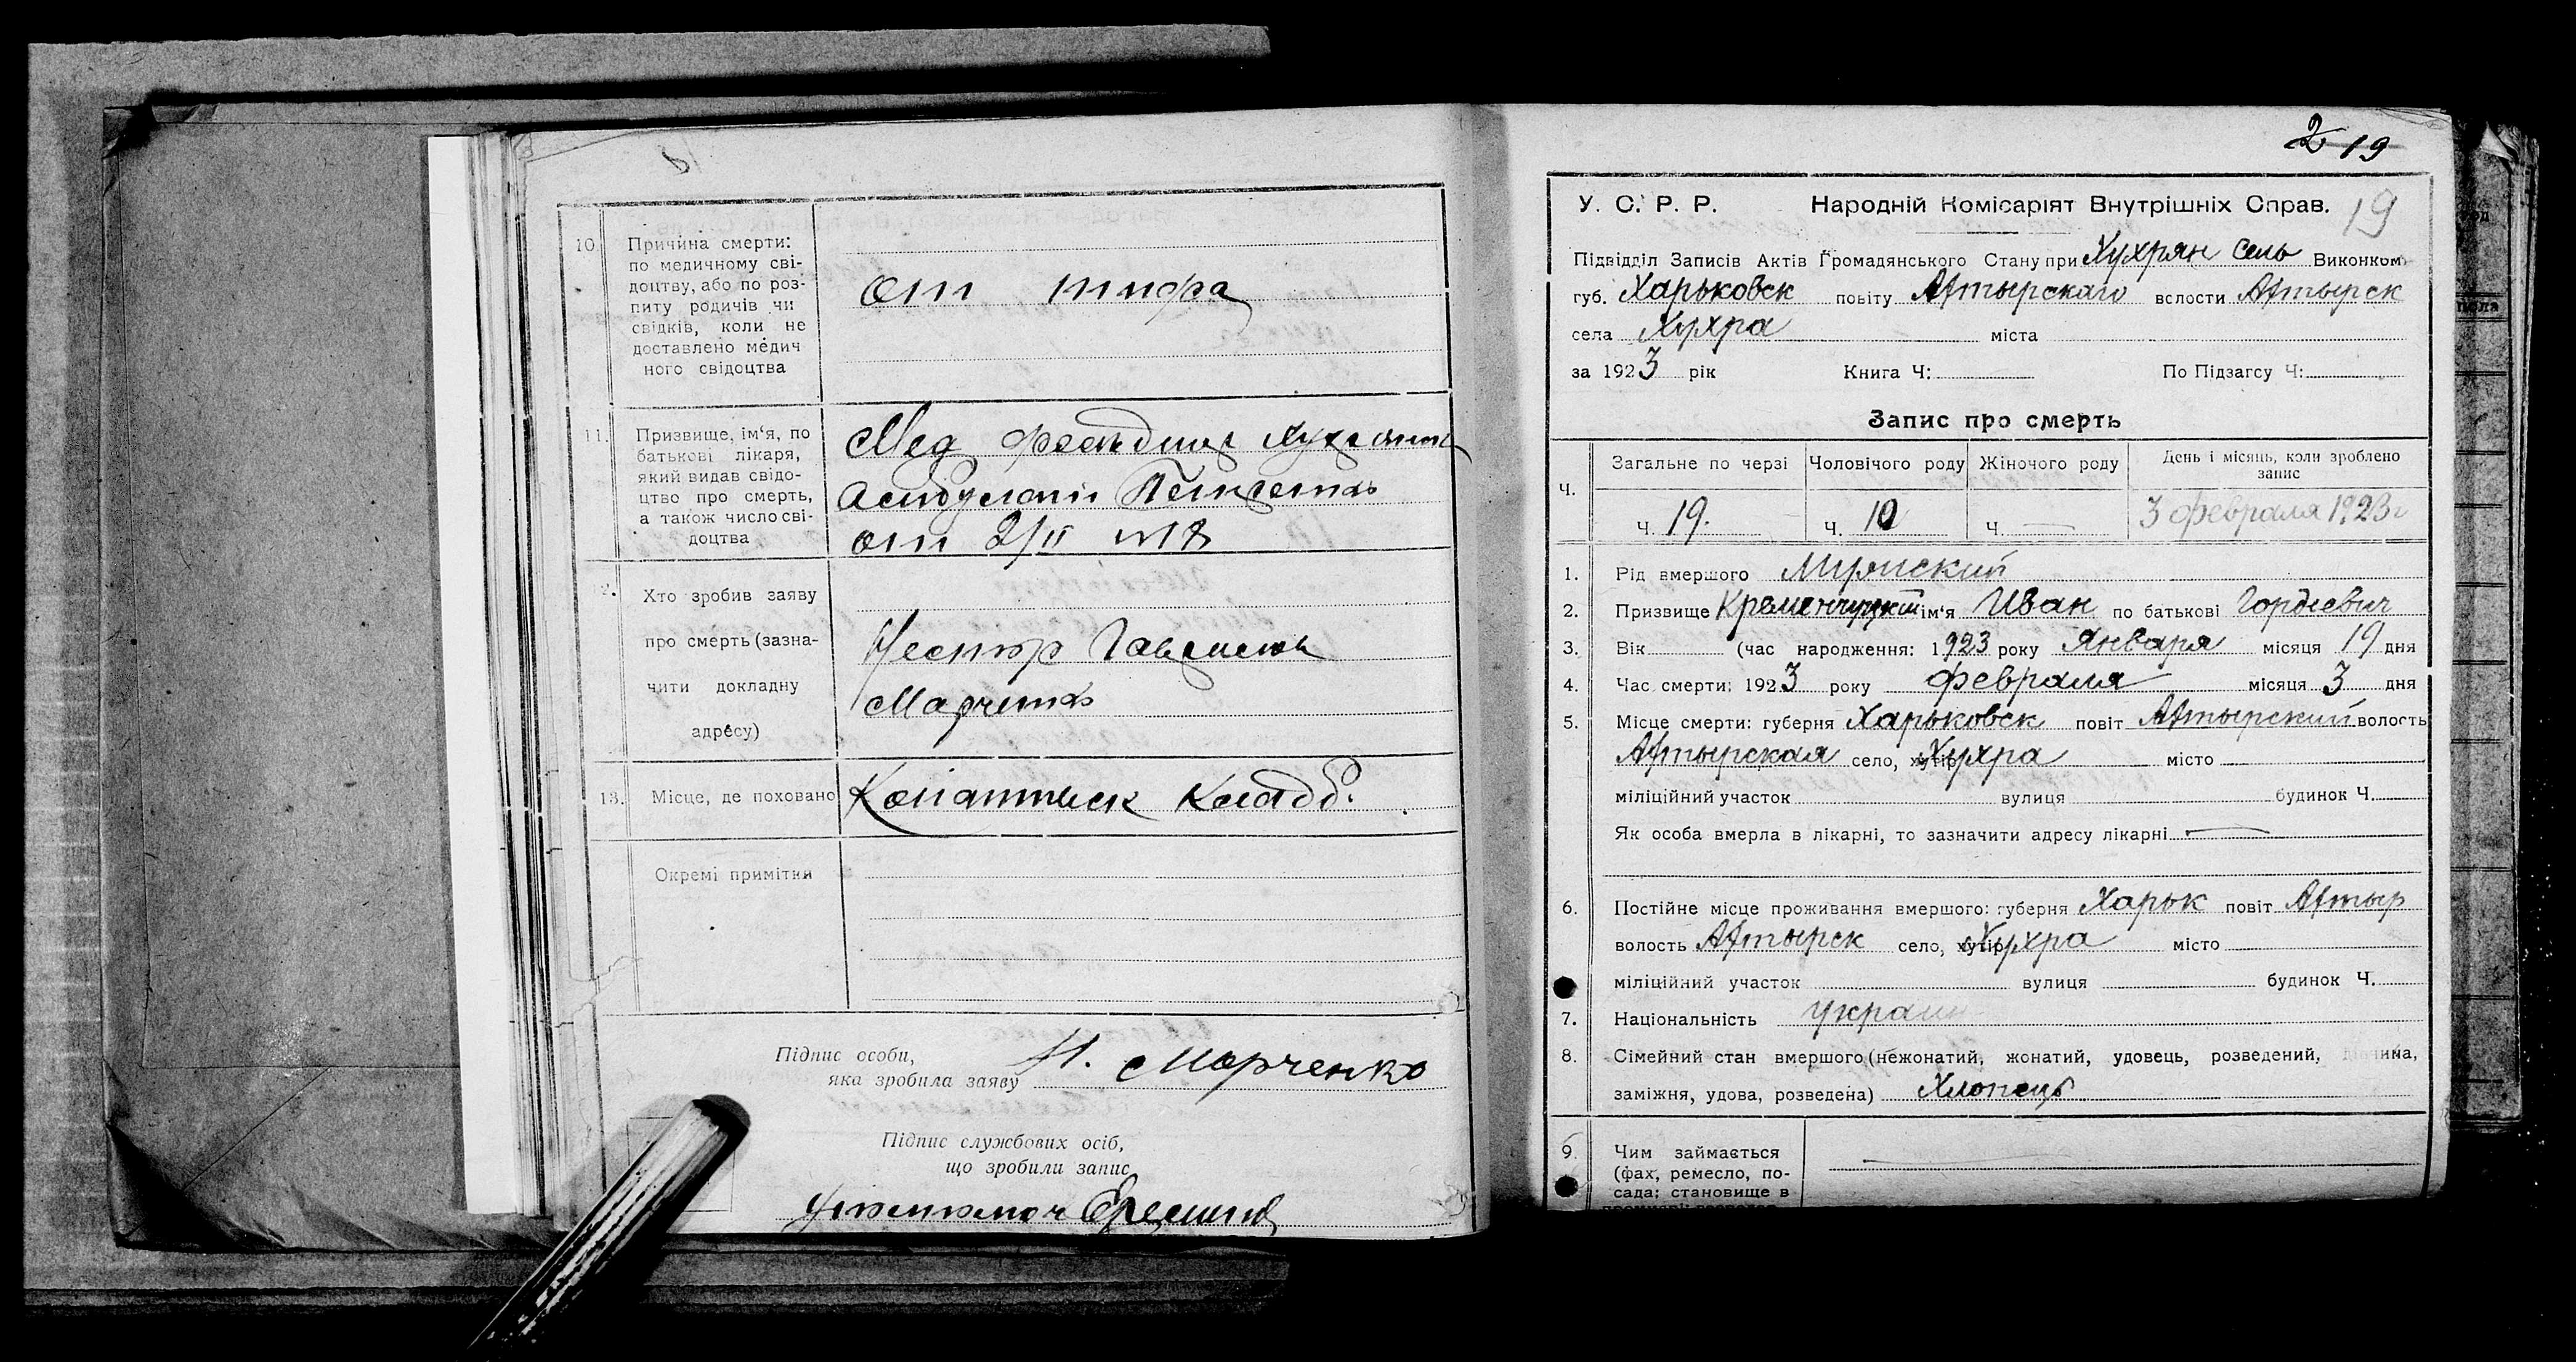 10. Причина смерти:
по медичному сві-
доцтву, або по роз-
питу родичів чи
свідків, коли не
доставлено медич
ного свідоцтва
от тифа
11. Призвище, ім'я, по
батькові лікаря,
який видав свідо-
цтво про смерть,
а також число сві-
доцтва
Мед
от 2/II №18
Хто зробив заяву
про смерть (зазна-
чити докладну
адресу)
Нестор
Марченко
13. Місце, де поховано
кладб.
Окремі примітки
Підпис особи,
яка зробила заяву
Н. Марченко
Підпис службових осіб,
що зробили запис
2 19
У. С. Р. Р. Народній Комісаріят Внутрішніх Справ. 19
Підвідділ Записів Актів Громадянського Стану при Хухрян сель Виконком
губ. Харьковск повіту Ахтырскаго волости Ахтырск
села Хухра міста
за 1923 рік Книга Ч: По Підзагсу Ч:
Запис про смерть
Ч. Загальне по черзі Чоловічого роду Жіночого роду День і місяць, коли зроблено
запис
Ч. 19. Ч. 10 Ч. — 3 февраля 1923 г
1. Рід вмершого Мужский
2. Призвище Кременчуцкий ім'я Иван по батькові Гордіевич
3. Вік (час народження: 1923 року Января місяця 19 дня
4. Час смерти: 1923 року февраля місяця 3 дня
5. Місце смерти: губерня Харьковск повіт Ахтырский волость
Ахтырская село, хутір Хухра місто
міліційний участок вулиця будинок Ч.
Як особа вмерла в лікарні, то зазначити адресу лікарні —
6. Постійне місце проживання вмершого: губерня Харьк повіт Ахтыр
волость Ахтырск село, хутір Хухра місто
міліційний участок вулиця будинок Ч.
7. Національність украин
8. Сімейний стан вмершого (нежонатий, жонатий, удовець, розведений, дівчина,
заміжня, удова, розведена) Хлопець
9. Чим займається
(фах, ремесло, по-
сада; становище в